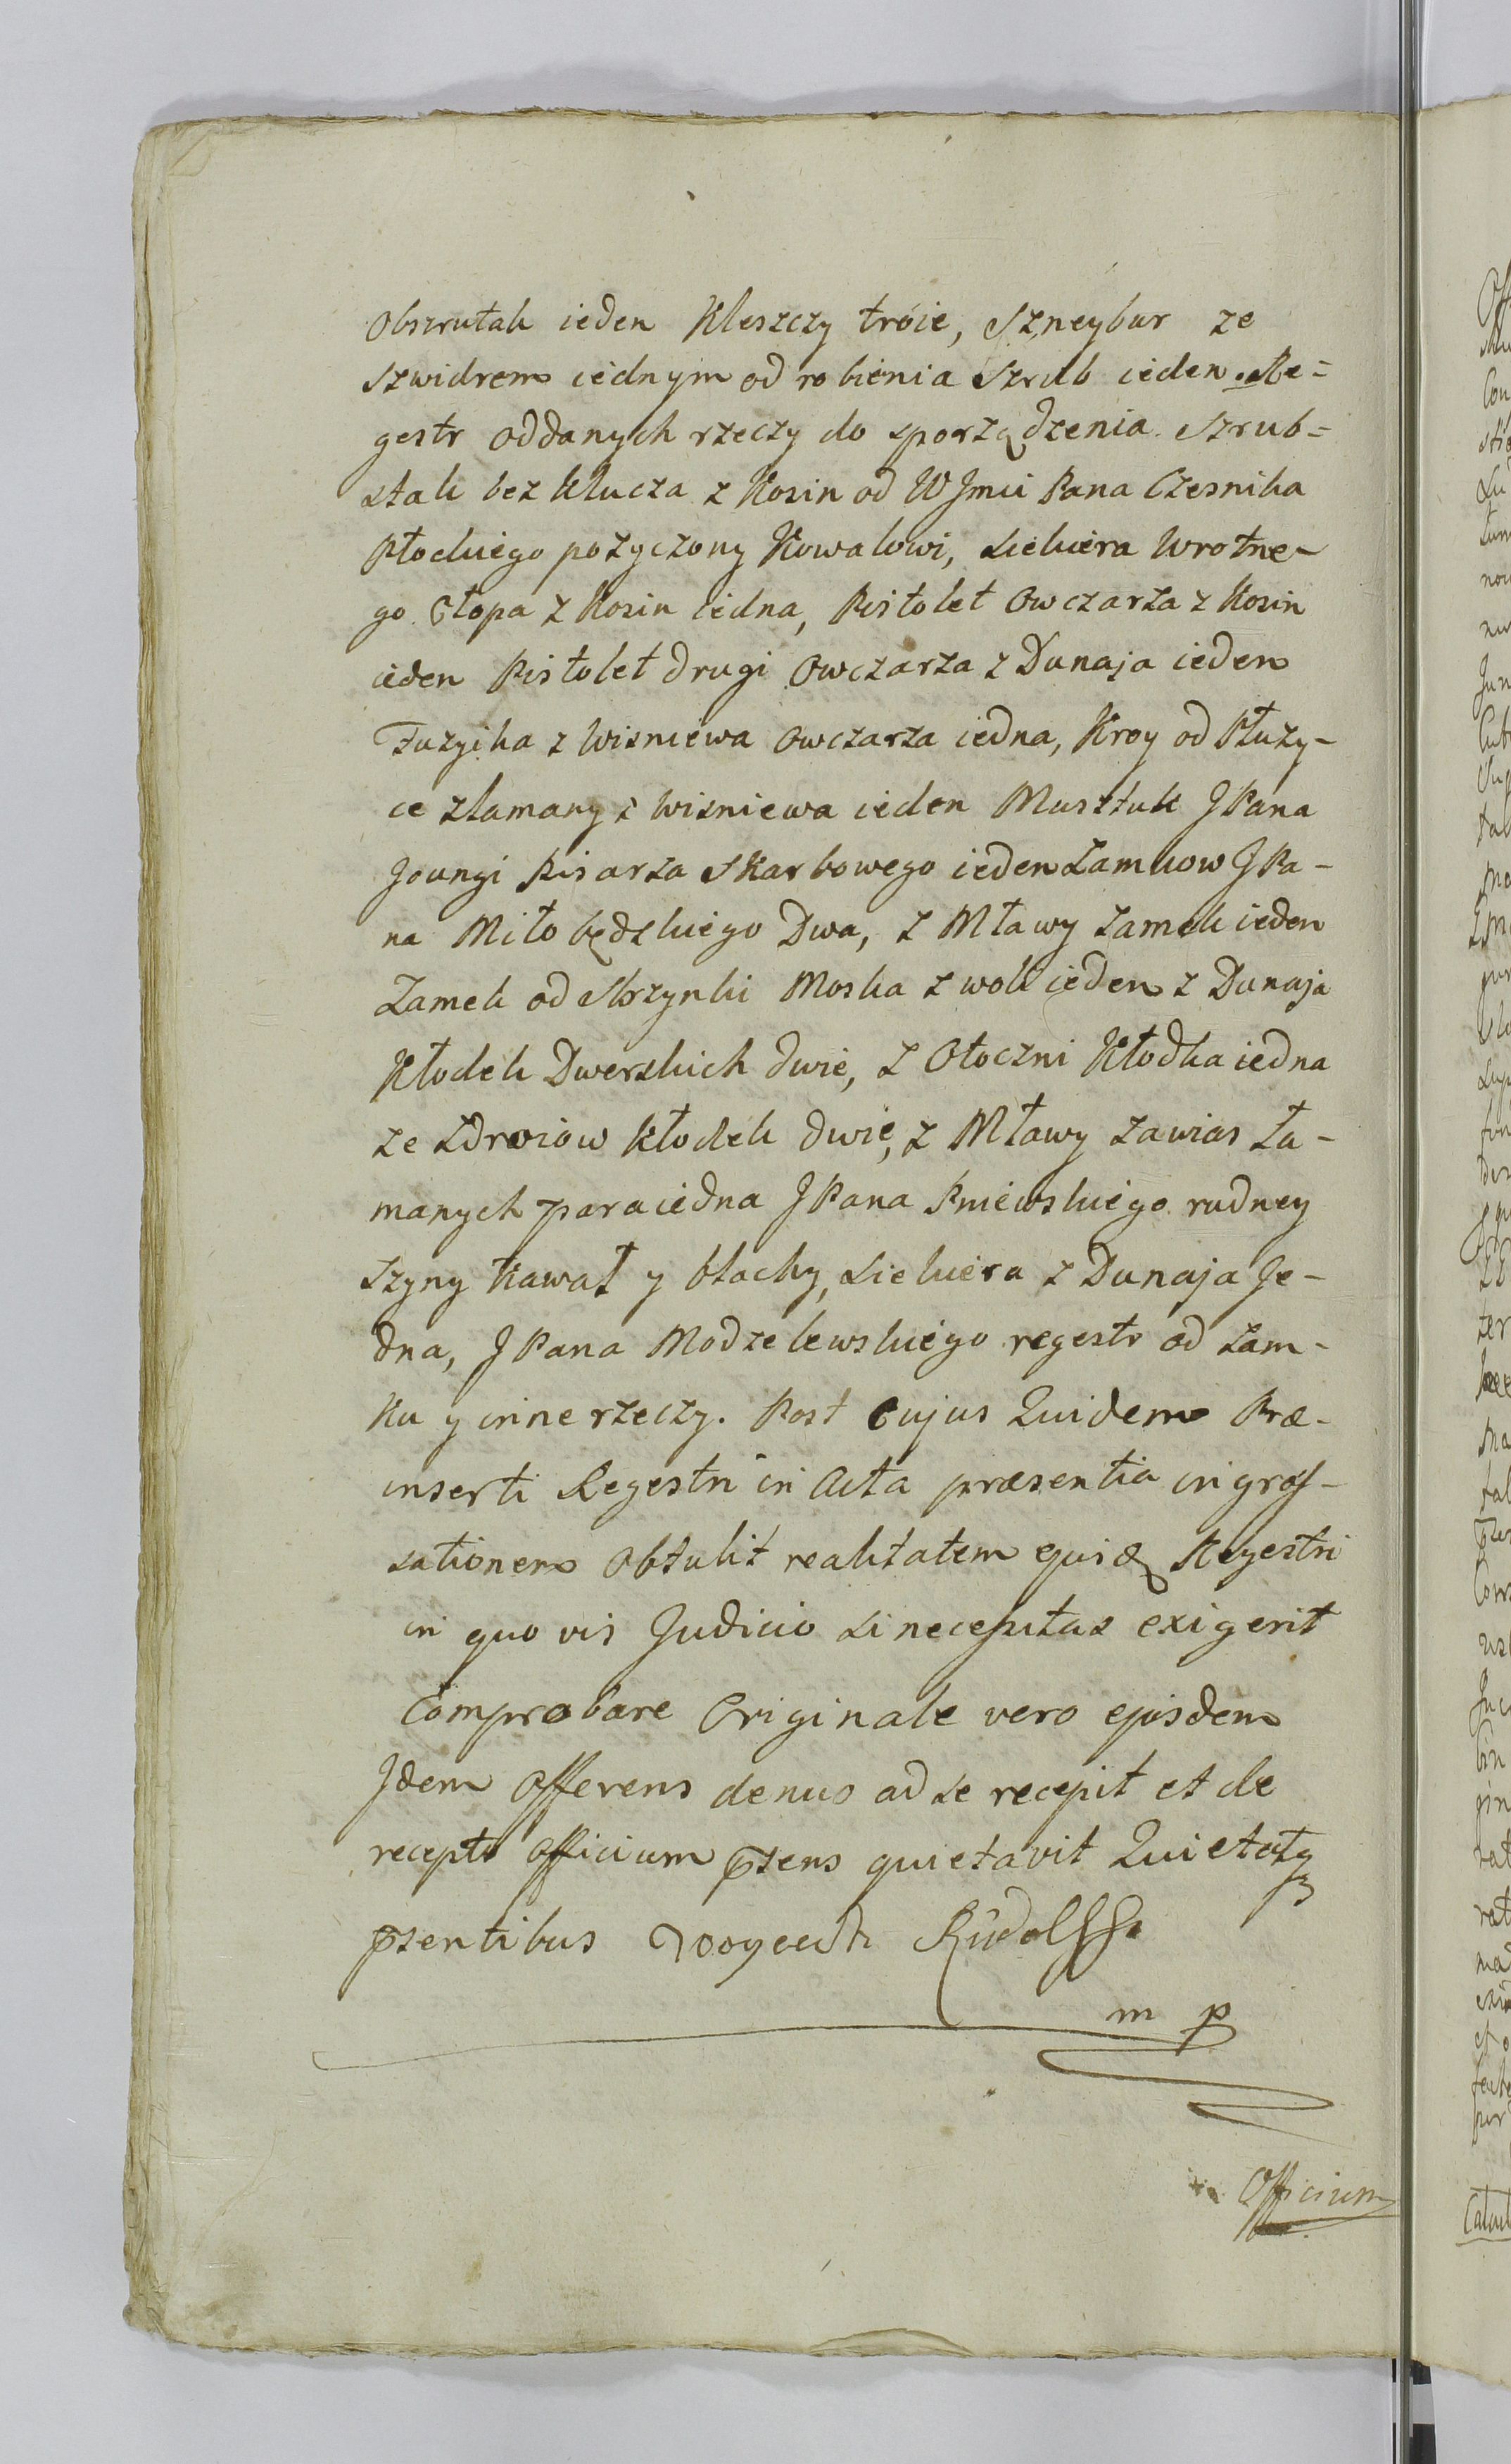 Obszrutak ieden Kleszczy tróie, Szneybur ze
szwidrem iednym od robienia Szrub ieden. Re=
gestr oddanych rzeczy do sporządzenia. Szrub=
stak bez klucza z Kosin od W Jmci Pana Czesnika
Płockiego pożyczony Kowalowi, Siekiera Wrotne-
go Chłopa z Kosin iedna, Pistolet Owczarza z Kosin
ieden Pistolet drugi Owczarza z Dunaja ieden
Fuzyika z Wisniewa Owczarza iedna, Kroy od Płuży-
ce złamany z Wisniewa ieden Musztuk J Pana
Joungi Pisarza Skarbowego ieden Zamkow J Pa-
na Miłobędzkiego Dwa, z Mławy Zamek ieden
Zamek od Skrzynki Moska z Wolk ieden z Dunaja
Kłodek Dwerskich dwie, z Otoczni Kłodka iedna
ze Zdroiow kłodek dwie, z Mławy zawias ła-
manych para iedna J Pana Pniewskiego rudney
Szyny kawał y blachy, Siekiera z Dunaja Je-
dna, J Pana Modzelewskiego regestr od zam-
ku y inne rzeczy. Post Cujus Quidem Præ-
inserti Regestri in Acta præsentia ingros-
sationem Obtulit realitatem ejusq Regestri
in quo vis Judicio si necessitas exigerit
Comprobare Originale vero ejusdem
Idem Offerens denuo ad se recepit et de
recepto Officium psens quietavit Quietatq
psentibus Woyciech Rudolff
m p
Officium